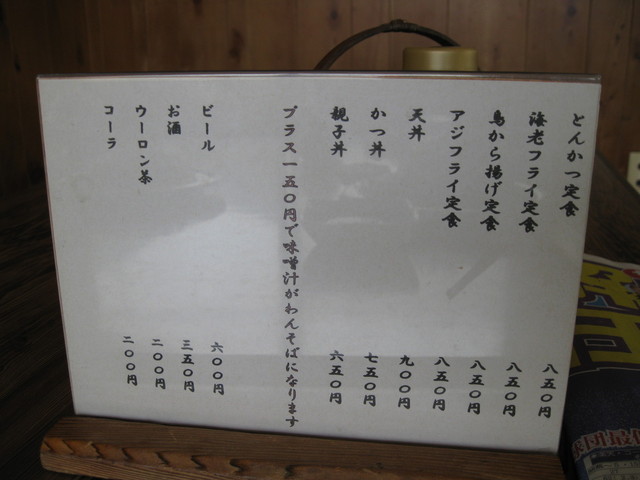 とんかつ定食 八五〇円
海老フライ定食 八五〇円
鳥から揚げ定食 八五〇円
アジフライ定食 八五〇円
天丼 九〇〇円
かつ丼 七五〇円
親子丼 六五〇円
プラス一五〇円で味噌汁がわんそばになります
ビール 六〇〇円
お酒 三五〇円
ウーロン茶 二〇〇円
コーラ 二〇〇円